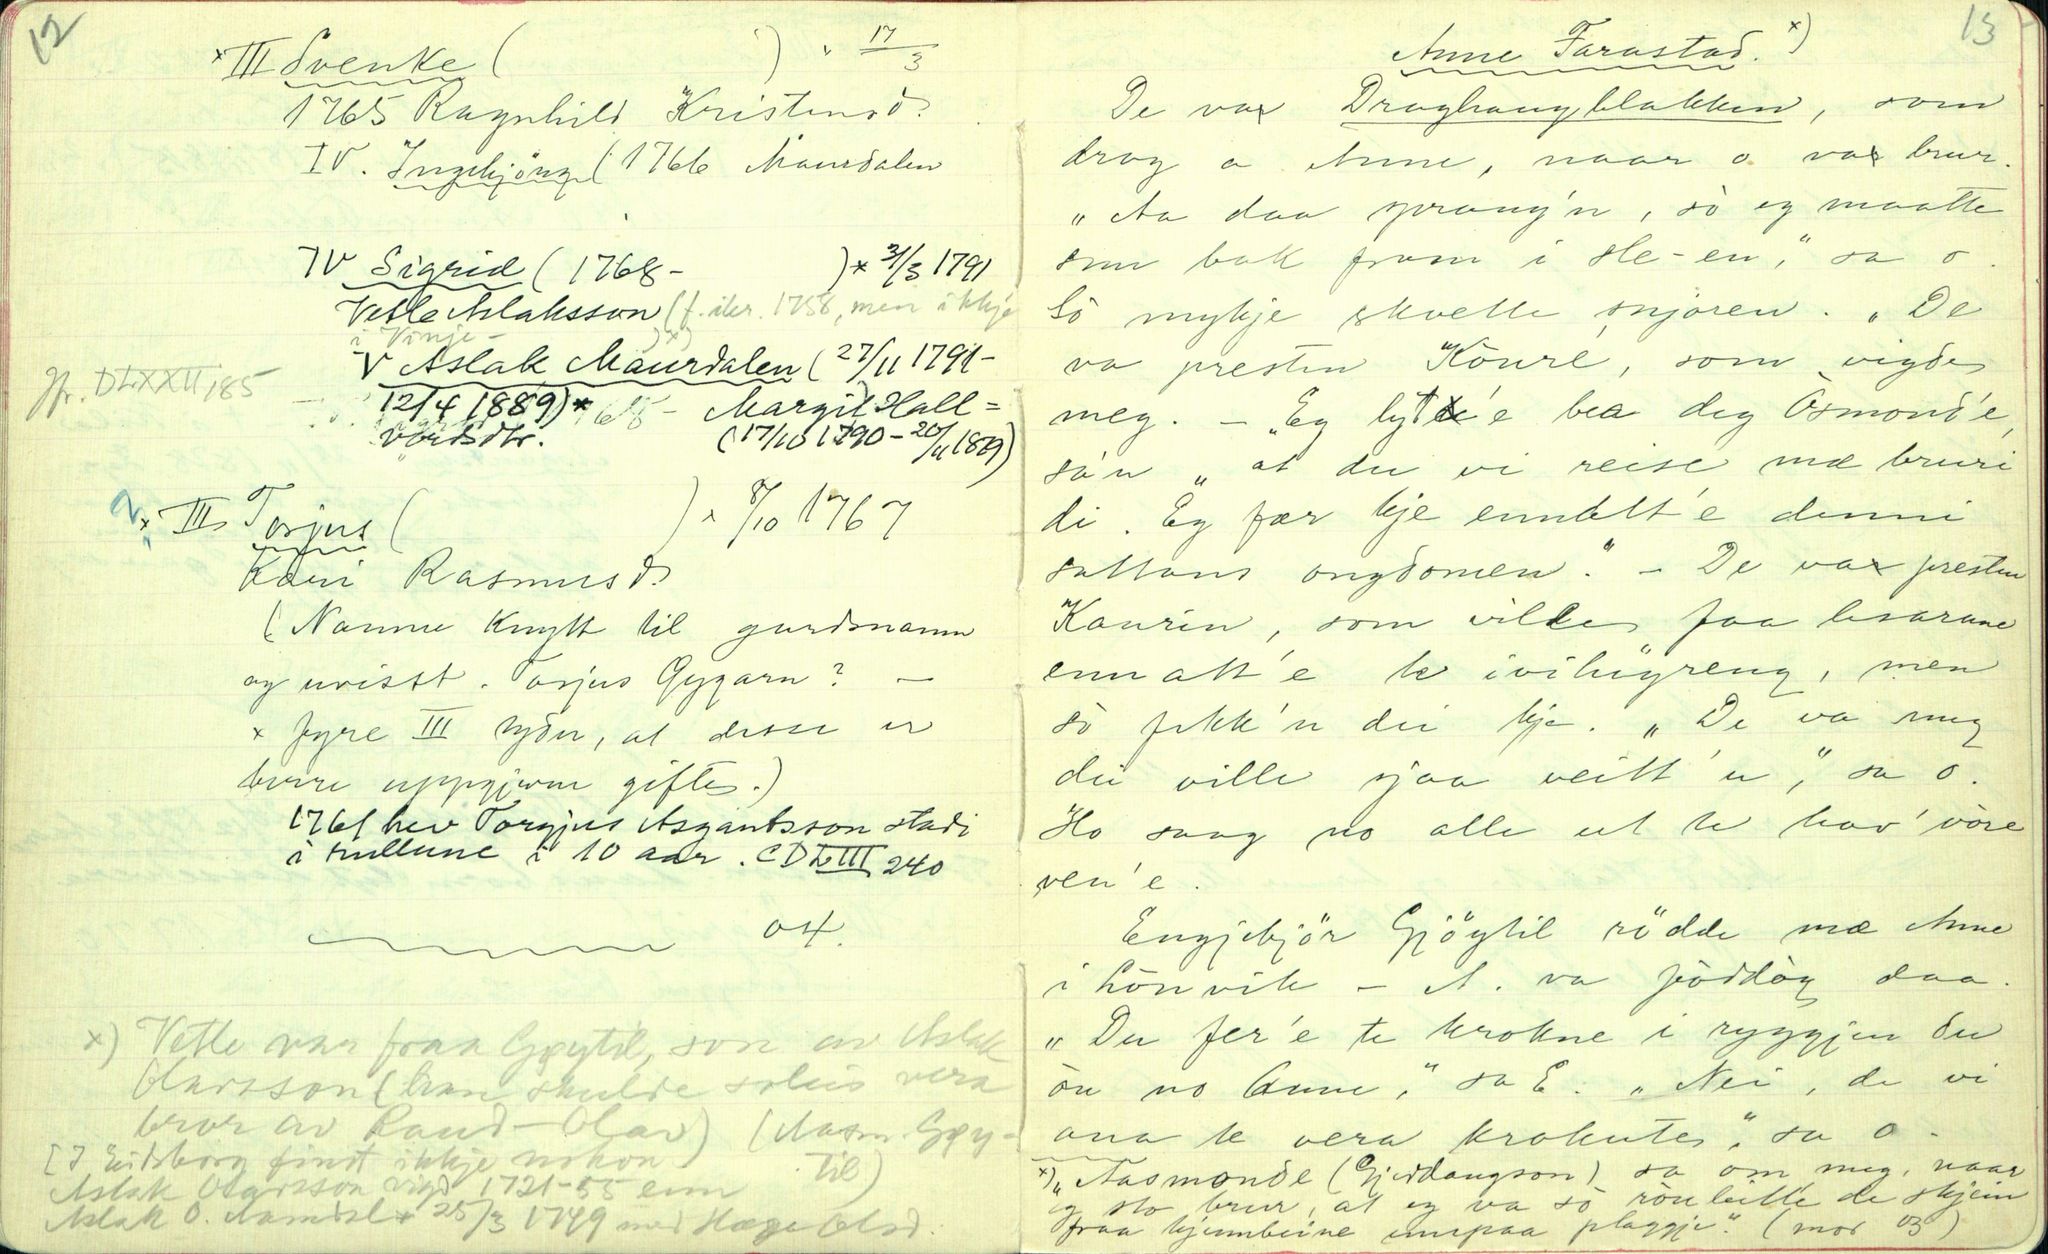 12
x III Svenke ( ) " 17/3
1765 Ragnhild Kristensd.
IV. Ingebjörg ( 1766 Maurdalen
IV Sigrid ( 1768- ) x 3/3 1791
Vetle Aslaksson (f. ikr. 1758, men ikkje
i Vinje - ) x)
V Aslak Maurdalen ( 27/11 1791-
Jfr. DLXXII, 85
12/4 1889) x Margit Hall=
vordsdtr. (17/10 1790 - 20/11 1869)
2
x III Torjus ( ) x 8/10 1767
Kari Rasmusd.
( Namne knytt til gardsnamn
og uvisst. Torjus Gygarn? -
x fyre III syðer, at desse er
berre uppgjevne gifte.)
1761 hev Torgjus Asgautsson stadi
i rullune i 10 aar. CDLIII 240
04.
x) Vetle var fraa Gøytil, son av Aslak
Olavsson (han skulde soleis vera
bror av Raud-Olav) (Aasm. Gøy-
til)
[I Eidsborg finst ikkje nokon
Aslak Olavsson vigd 1721-55 enn
Aslak O. Aamdal x 25/3 1749 med Hæge Olsd.
13
Anne Farastad. x)
De var Draghaugblakken, som
drog o Anne, naar o var brur.
"Aa daa sprang'n, so eg maatte
snu bak fram i sle-en," sa o.
So mykje skvette snjoren. "De
va presten Kòurè, som vigde
meg. - "Eg lyt'e bea deg Òsmond'e,
sa'n "at du vi reise mæ bruri
di. Eg fær kje ennelt'e denni
sattans ongdomen." - De var presten
Kaurin, som ville faa lesarane
enn att'e te ivihøgreng, men
so fekk'n dei kje. "De va meg
dei ville sjaa veitt'u," sa o.
Ho saag no alle ut te hav' vòre
ven'e.
Engjebjör Gjöytil rödde mæ Anne
i Lònvik - A. va fòddòg daa.
"Du fer'e te krokne i ryggjen du
òu no Anne," sa E. "Nei, de vi
ana te vera krokute," sa o.
x) "Aasmonde (Gjerdaugson) sa om meg, naar
eg sto brur, at eg va so ròuleitte de skjein
fraa kjennbeine innpaa plaggje." (mor 03)